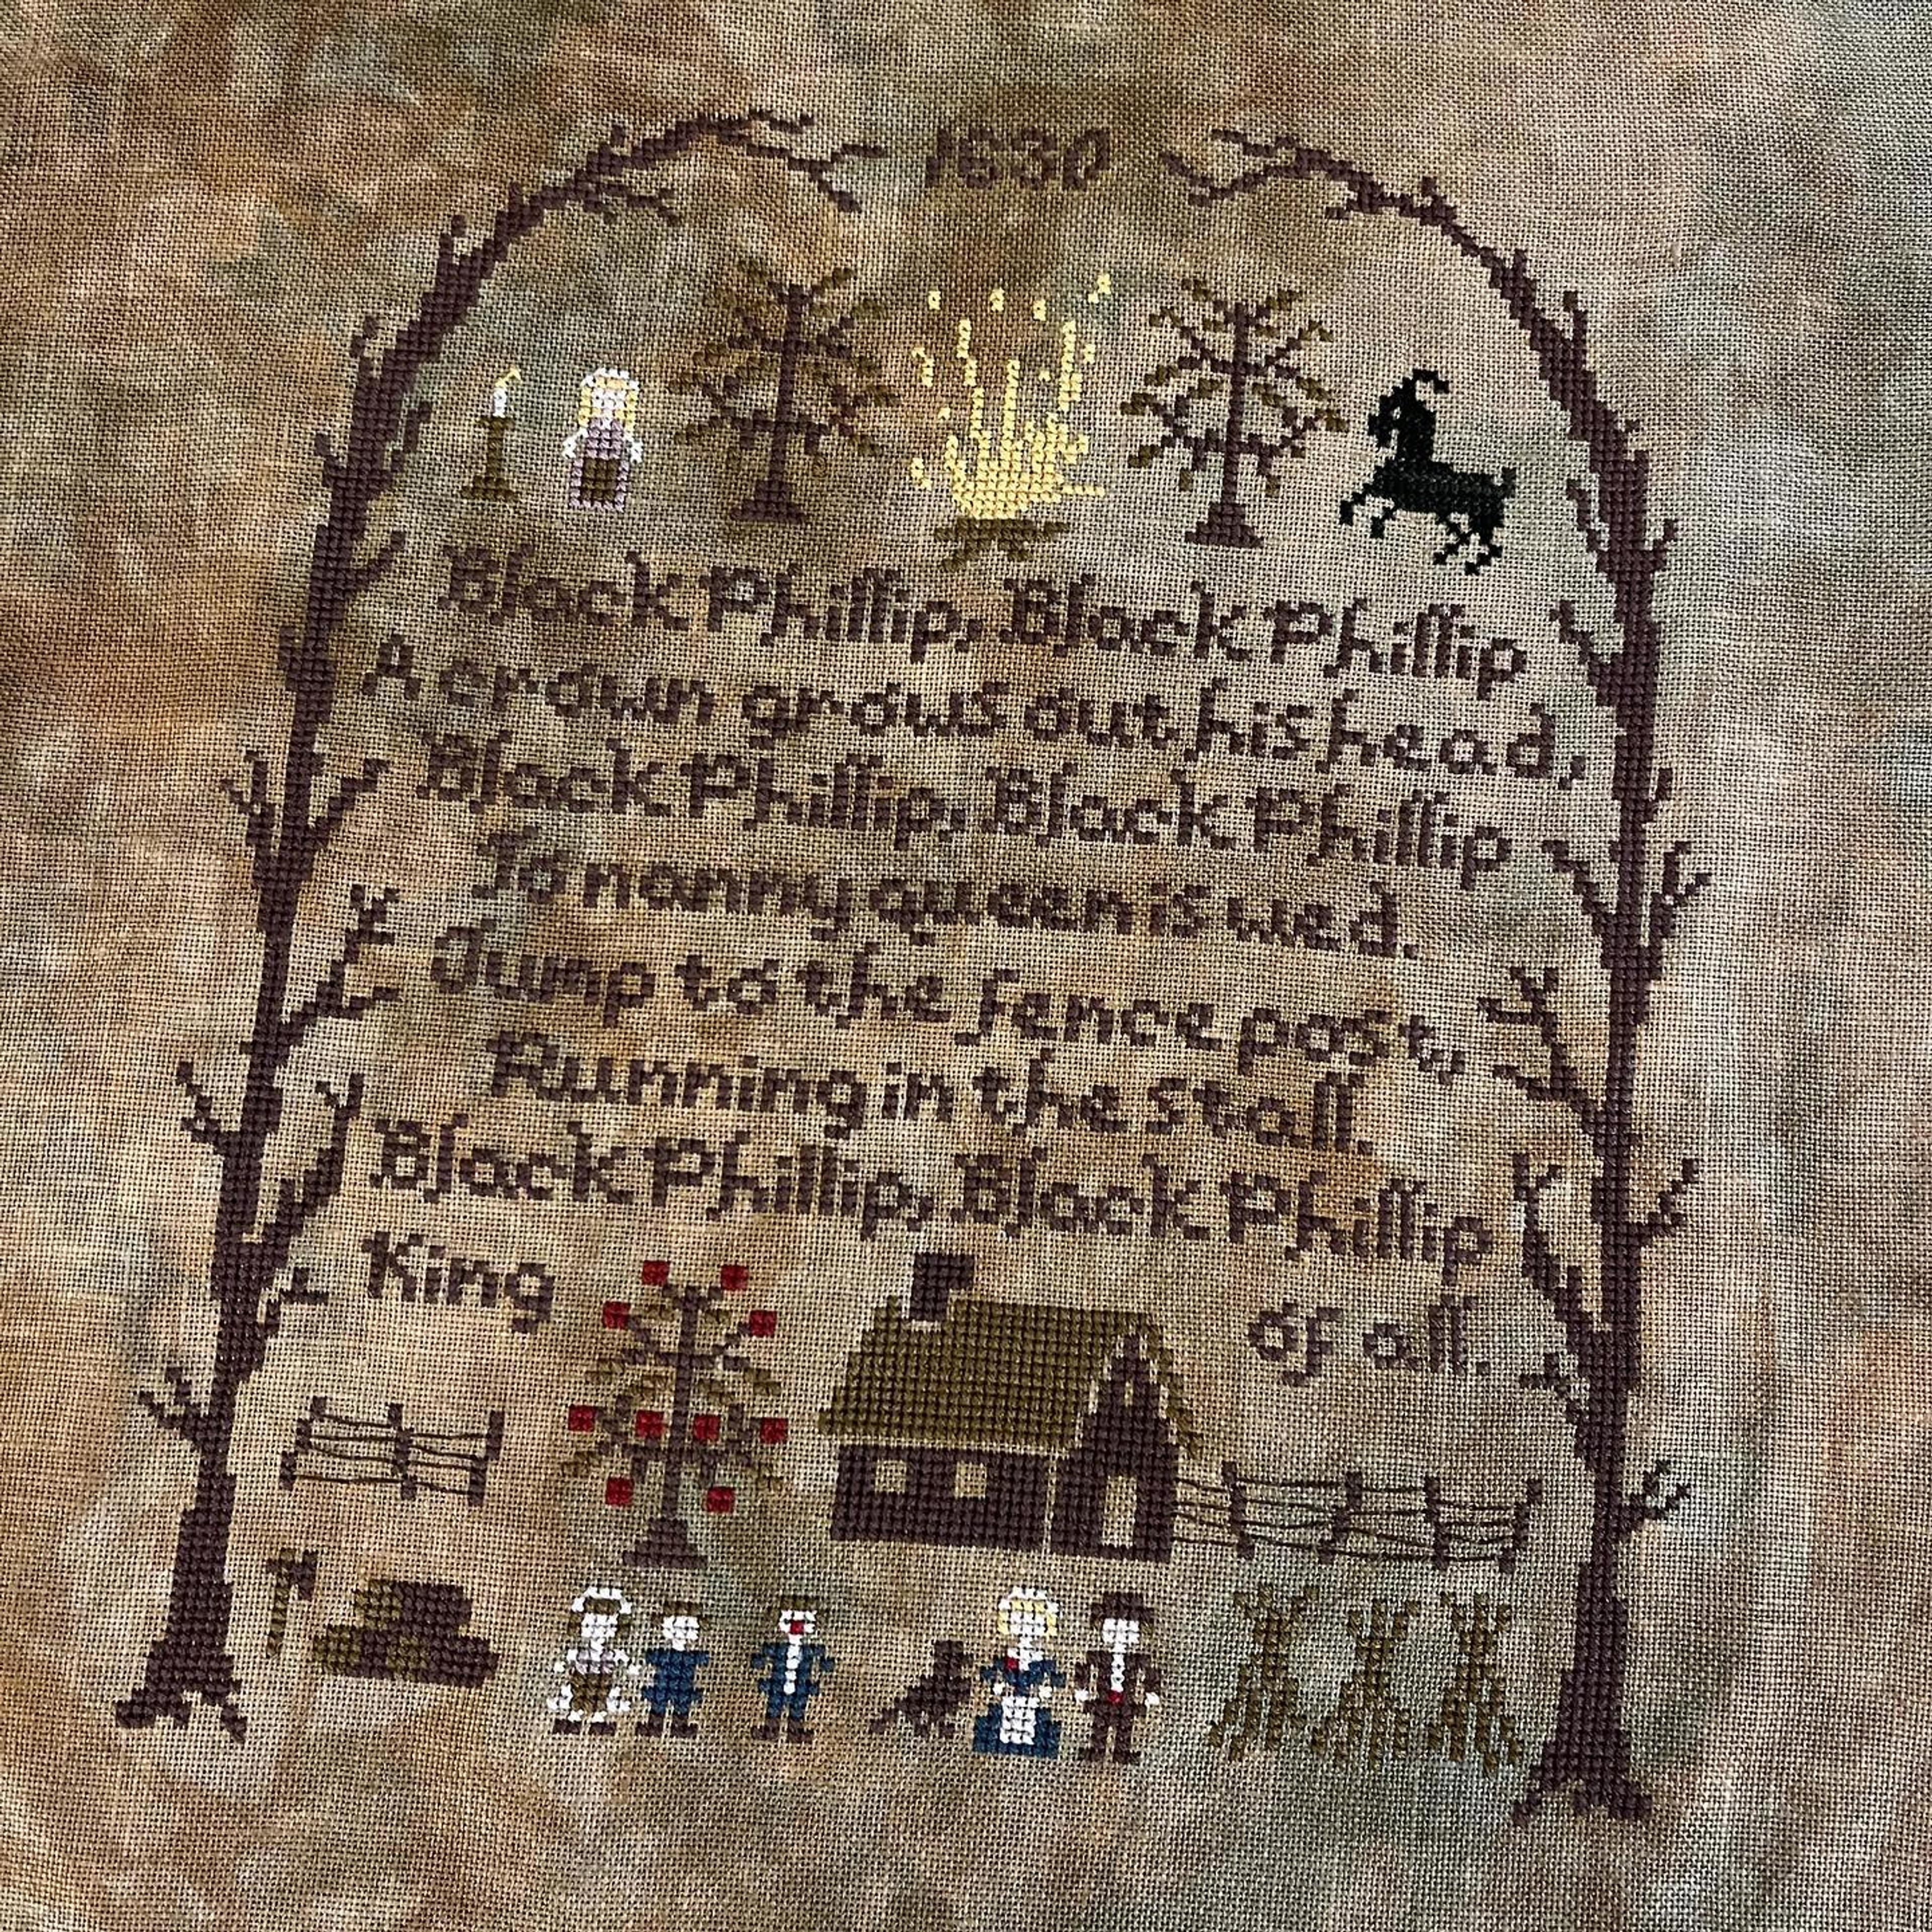 1630
Black Phillip, Black Phillip
A crown grows out his head,
Black Phillip, Black Phillip
To nanny queen is wed.
Jump to the fence post,
Running in the stall.
Black Phillip, Black Phillip
King of all.